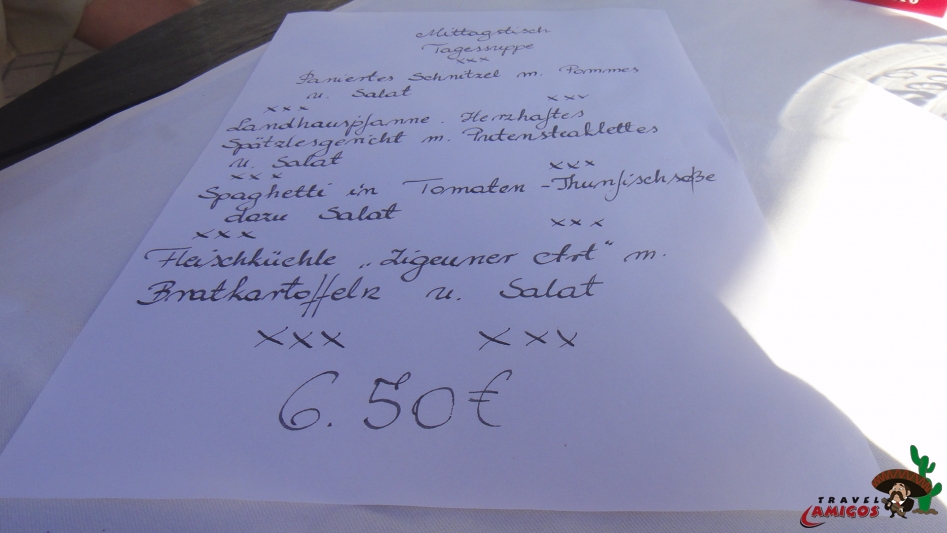 Mittagstisch
Tagessuppe
xxx
Paniertes Schnitzel m. Pommes
u. Salat
xxx xxx
Landhauspfanne. Herzhaftes
Spätzlesgericht m. Putensteaklettes
u. Salat
xxx xxx
Spaghetti in Tomaten-Thunfischsoße
dazu Salat
xxx xxx
Fleischküchle „Zigeuner Art" m.
Bratkartoffeln u. Salat
xxx xxx
6.50€
TRAVEL
AMIGOS